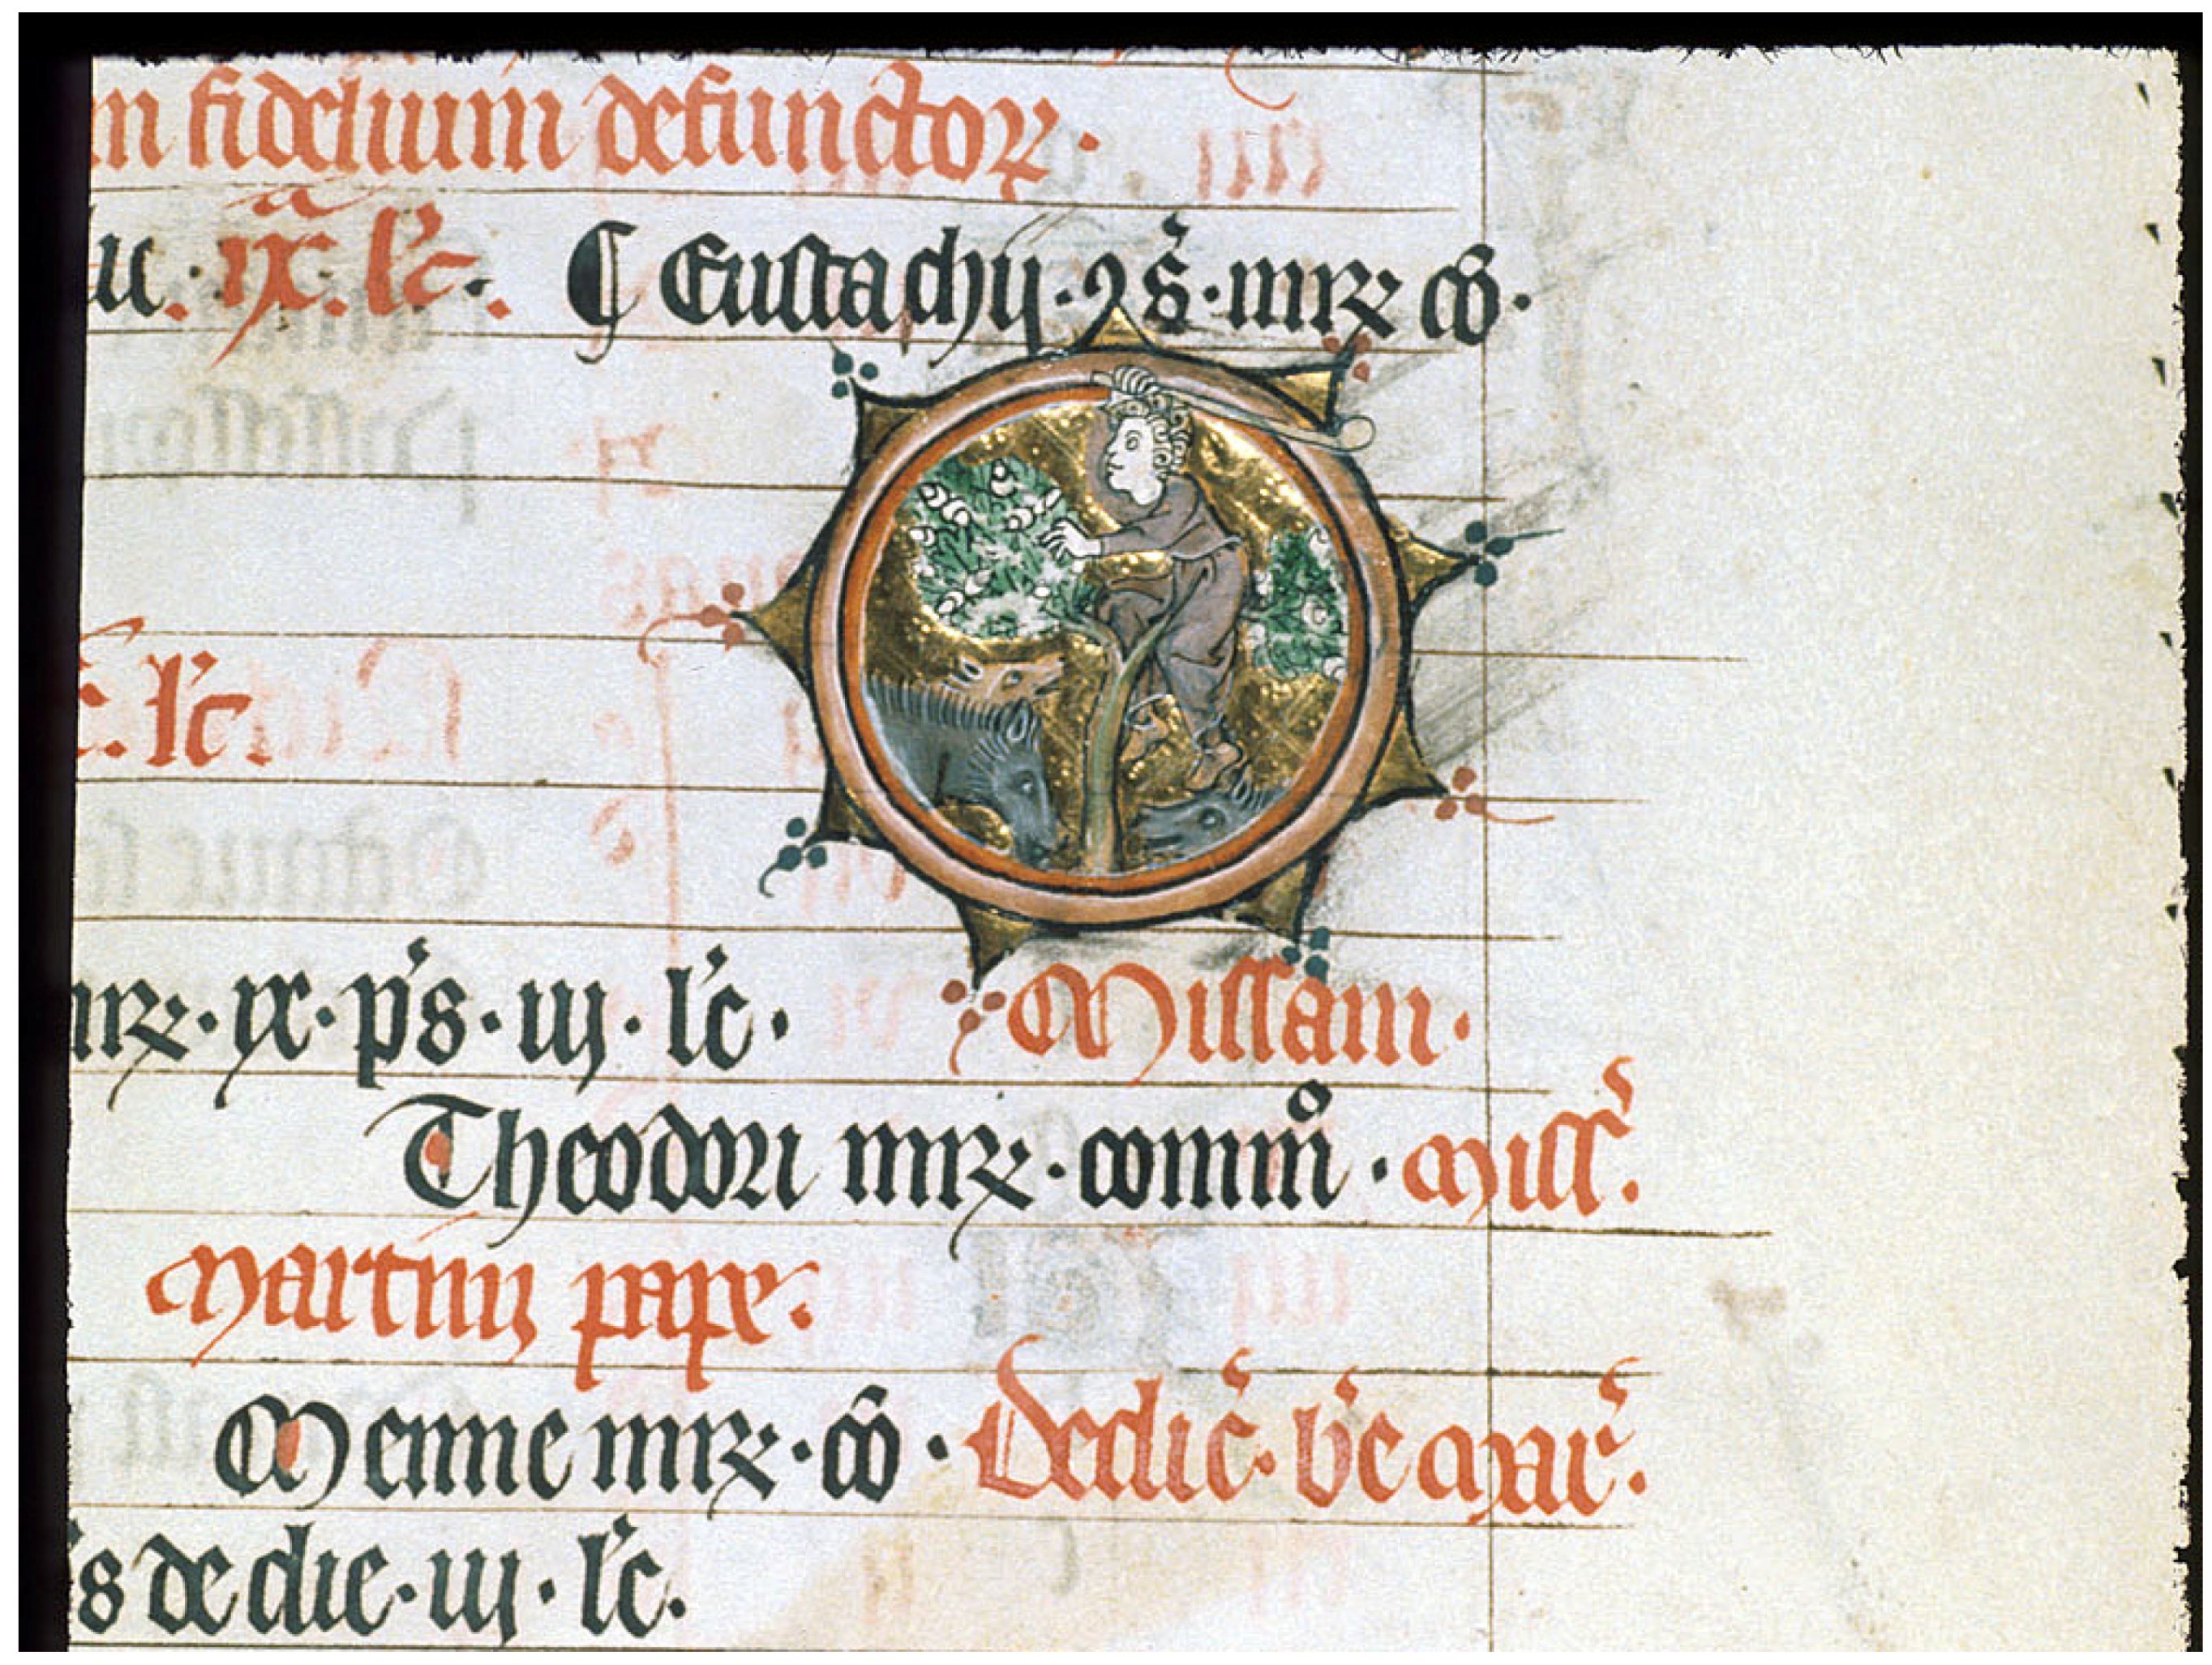 m fidelium defunctoꝝ.
u. ix. l'c. ¶ Eustachij. ꝯ s'. mrꝝ co.
l'c.
mrꝝ. ix. p's. iij. l'c. Missam.
Theodori mrꝝ. commo. Miss'.
Martini pape.
Menne mrꝝ. co. Dedic'. b'e Mar'.
s de die. iij. l'c.